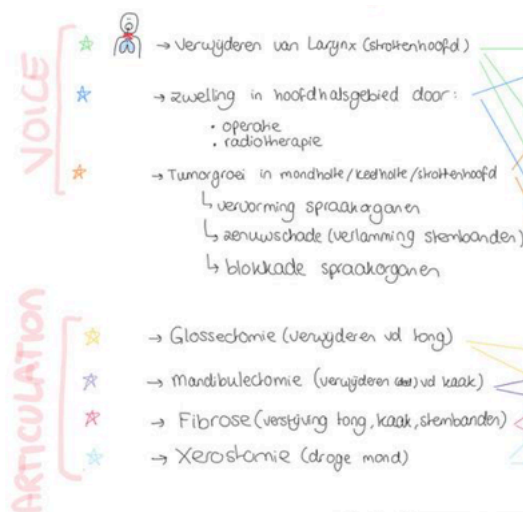 VOICE
→ verwijderen van Larynx (strottenhoofd)
→ zwelling in hoofdhalsgebied door:
• operatie
• radiotherapie
→ Tumorgroei in mondholte/keelholte/strottenhoofd
↳ vervorming spraakorganen
↳ zenuwschade (verlamming stembanden)
↳ blokkade spraakorganen
ARTICULATION
→ Glossectomie (verwijderen vd tong)
→ Mandibulectomie (verwijderen (deel) vd kaak)
→ Fibrose (verstijving tong, kaak, stembanden)
→ Xerostomie (droge mond)